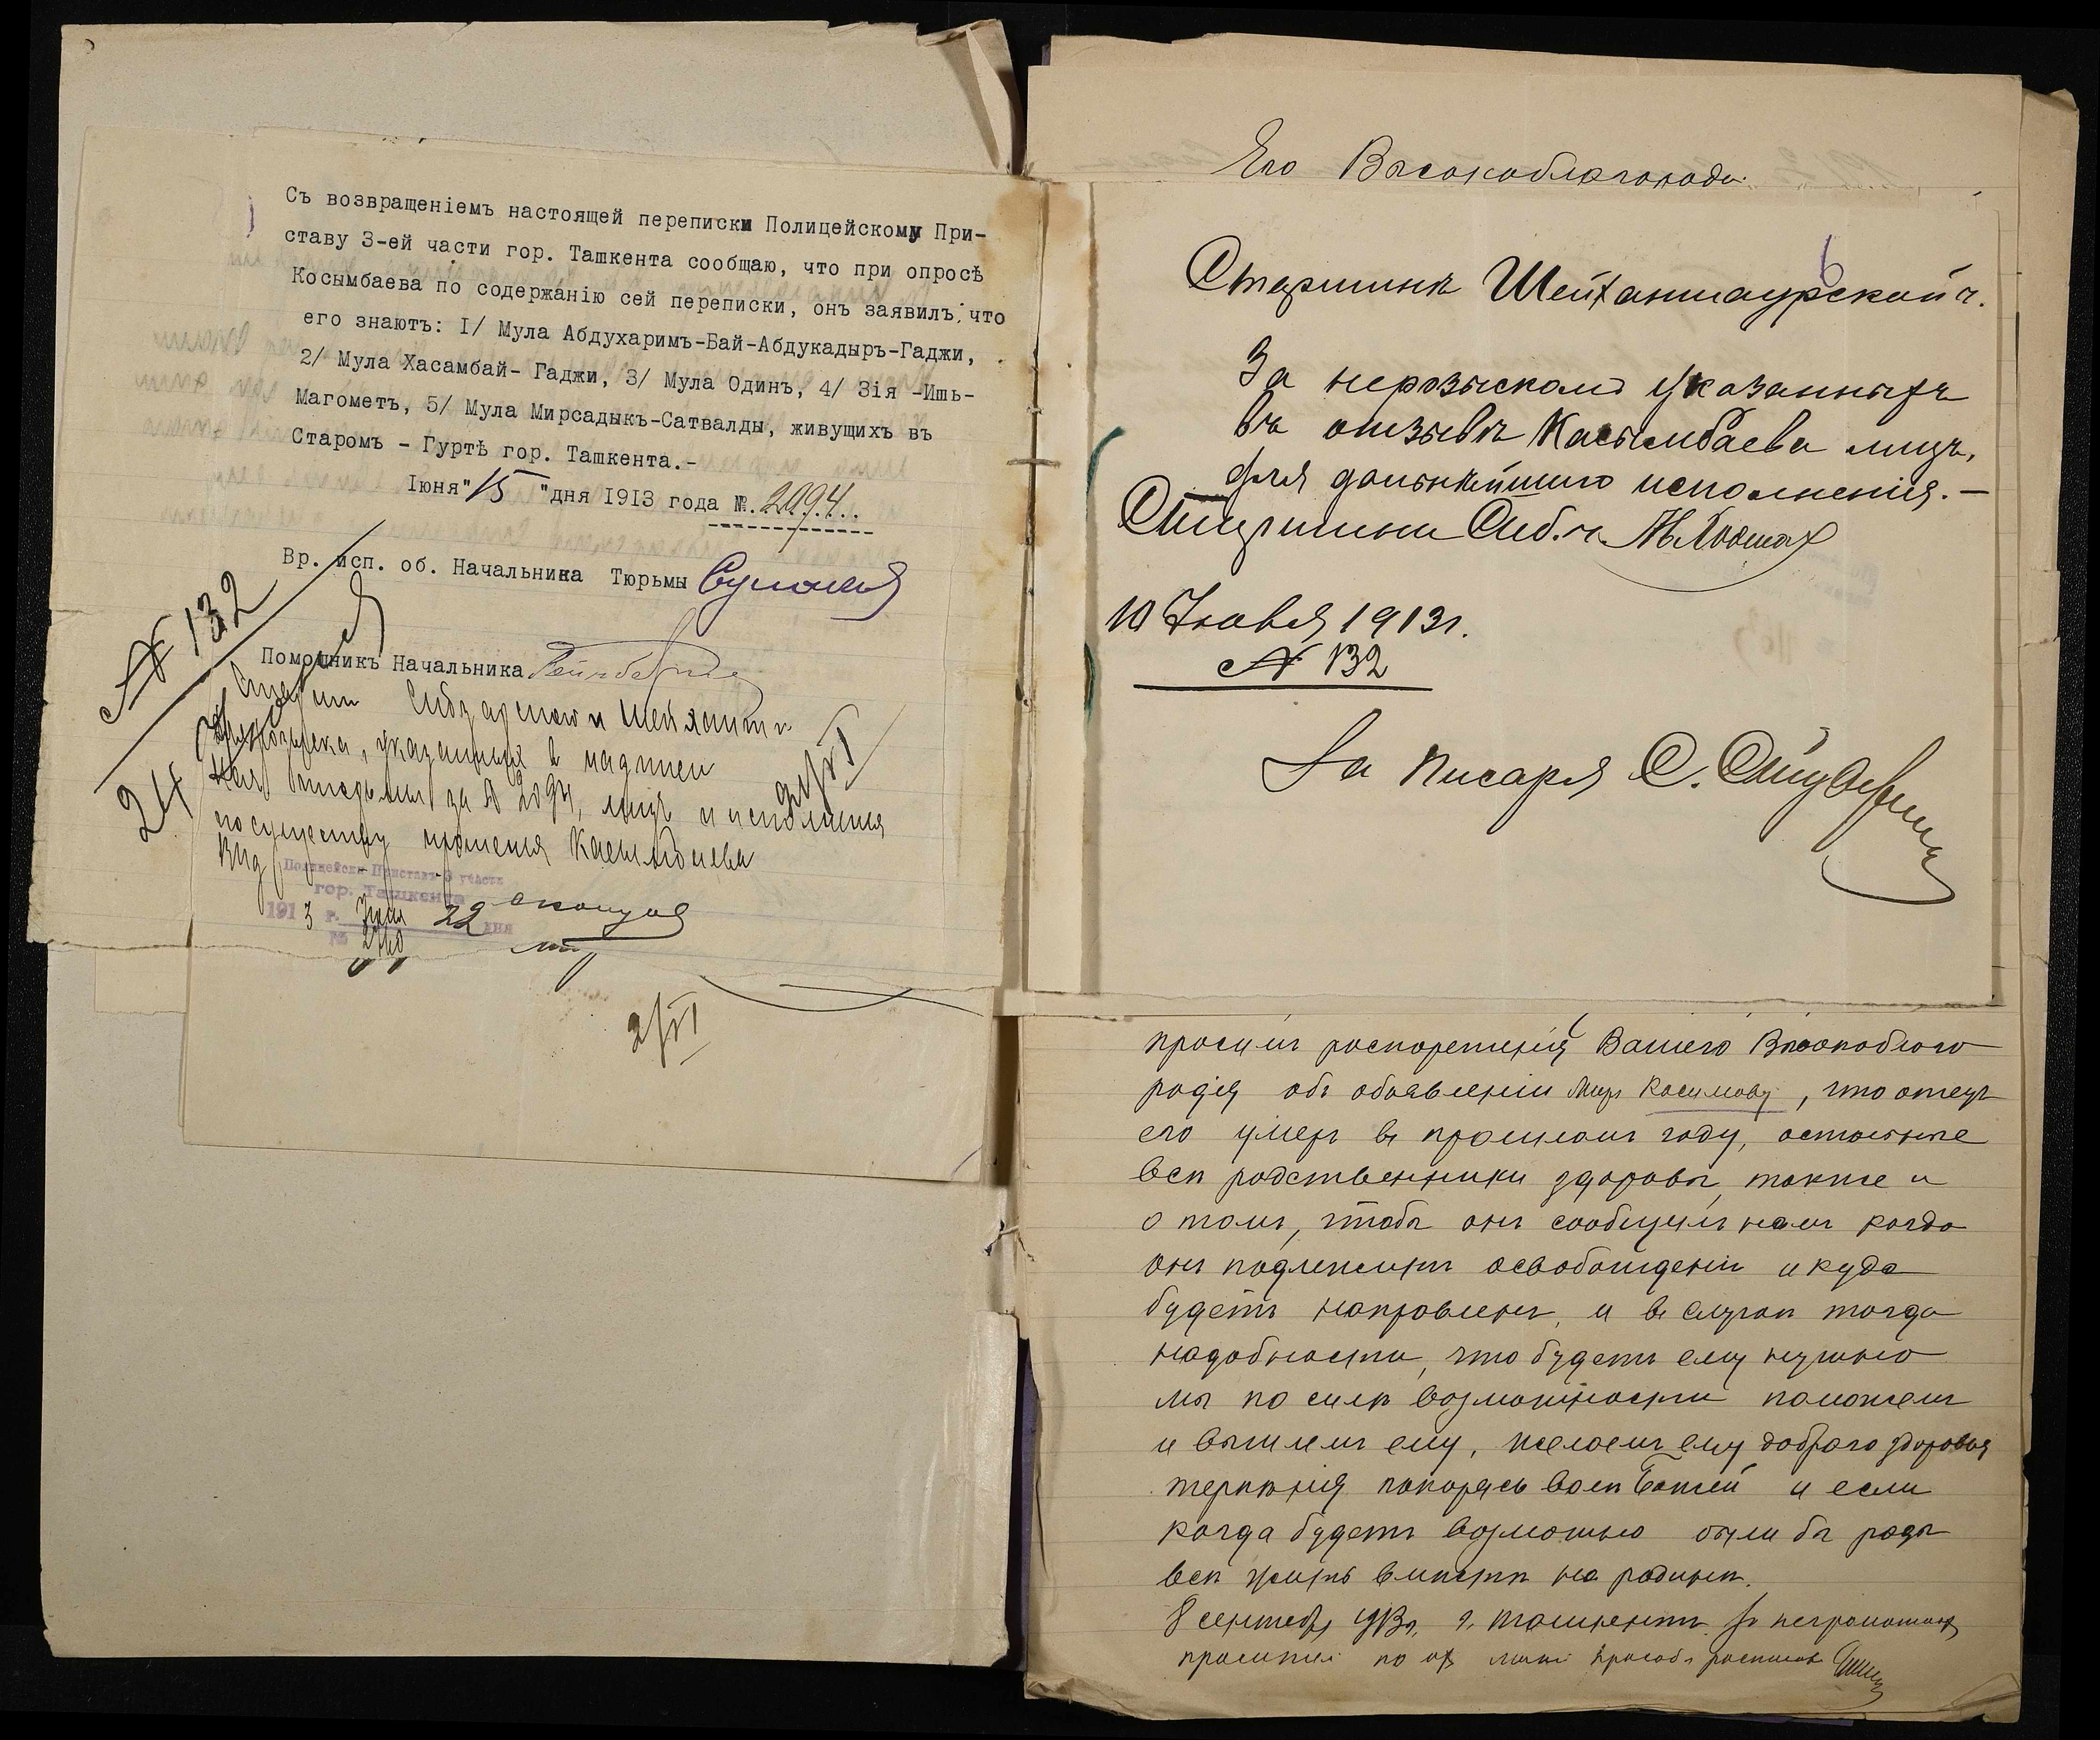 Съ возвращеніемъ настоящей переписки Полицейскому При-
ставу 3-ей части гор. Ташкента сообщаю, что при опросѣ
Косымбаева по содержанію сей переписки, онъ заявилъ, что
его знаютъ: I/ Мула Абдухаримъ-Бай-Абдукадыръ-Гаджи,
2/ Мула Хасамбай- Гаджи, 3/ Мула Одинъ, 4/ Зія -Ишь-
Магометъ, 5/ Мула Мирсадыкъ-Сатвалды, живущихъ въ
Старомъ - Гуртѣ гор. Ташкента.-
Іюня "15" дня 1913 года №. 2094.
Вр. исп. об. Начальника Тюрьмы
Помощникъ Начальника
№ 132
24
указанныхъ в надписи
за № 2094, лицъ и исполненія
по существу прошенія Касымбаева
Полицейскій Приставъ 3 участ
гор. Ташкента
1913 г. Іюня 22 дня
№ 2760
2/VI
Его Высокоблагороді
6
Старшинѣ Шейхантаурской ч.
За нерозыскомъ указанныхъ
въ отзывѣ Касымбаева лицъ,
для дальнѣйшаго исполненія.-
Старшина Сиб. ч.
10 Іюля 1913 г.
№ 132
За писаря С.
просимъ распоряженія Вашего Высокоблаго
родія объ объявленіи Мир Касимову, что отецъ
его умеръ въ прошломъ году, остальные
всѣ родственники здоровы, также и
о томъ, чтобы онъ сообщилъ намъ когда
онъ подлежитъ освобожденію и куда
будетъ направленъ, и въ случаѣ тогда
надобности, что будетъ ему нужно
мы по силѣ возможности поможемъ
и вышлемъ ему, желаемъ ему добраго здоровья
терпѣнія покорясь волѣ Божіей и если
когда будетъ возможно были бы рады
всѣ жить вмѣстѣ на родинѣ.
8 сентября 1913 г. г. Ташкентъ. За неграмотныхъ
просителей по ихъ личной просьбѣ росписался